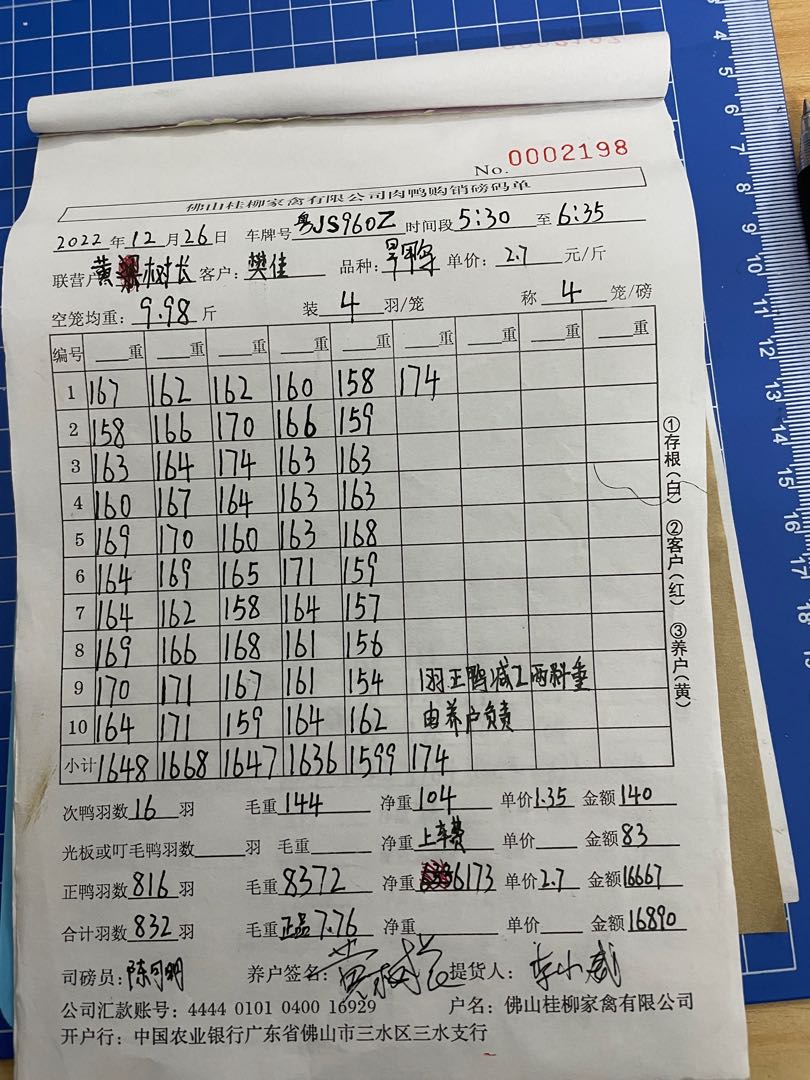 No. 0002198
佛山桂柳家禽有限公司肉鸭购销磅码单
2022年12月26日 车牌号粤JS960Z 时间段5:30至6:35
联营户黄树长 客户:樊佳 品种: 单价:2.7元/斤
空笼均重:9.98斤 装4羽/笼 称4笼/磅
编号 重 重 重 重 重 重 重 重 重
1 167 162 162 160 158 174
2 158 166 170 166 159
3 163 164 174 163 163
4 160 167 164 163 163
5 169 170 160 163 168
6 164 169 165 171 159
7 164 162 158 164 157
8 169 166 168 161 156
9 170 171 167 161 154 1羽正鸭减2两料重
10 164 171 159 164 162 由养户负责
小计 1648 1668 1647 1636 1599 174
①存根(白) ②客户(红) ③养户(黄)
次鸭羽数16羽 毛重144 净重104 单价1.35 金额140
光板或叮毛鸭羽数 羽 毛重 净重上车费 单价 金额83
正鸭羽数816羽 毛重8372 净重6173 单价2.7 金额16667
合计羽数832羽 毛重正品7.76 净重 单价 金额16890
司磅员:陈可明 养户签名:黄树长 提货人:李小威
公司汇款账号:4444 0101 0400 16929 户名:佛山桂柳家禽有限公司
开户行:中国农业银行广东省佛山市三水区三水支行
3
4
5
6
7
8
9
10
11
12
13
14
15
16
17
18